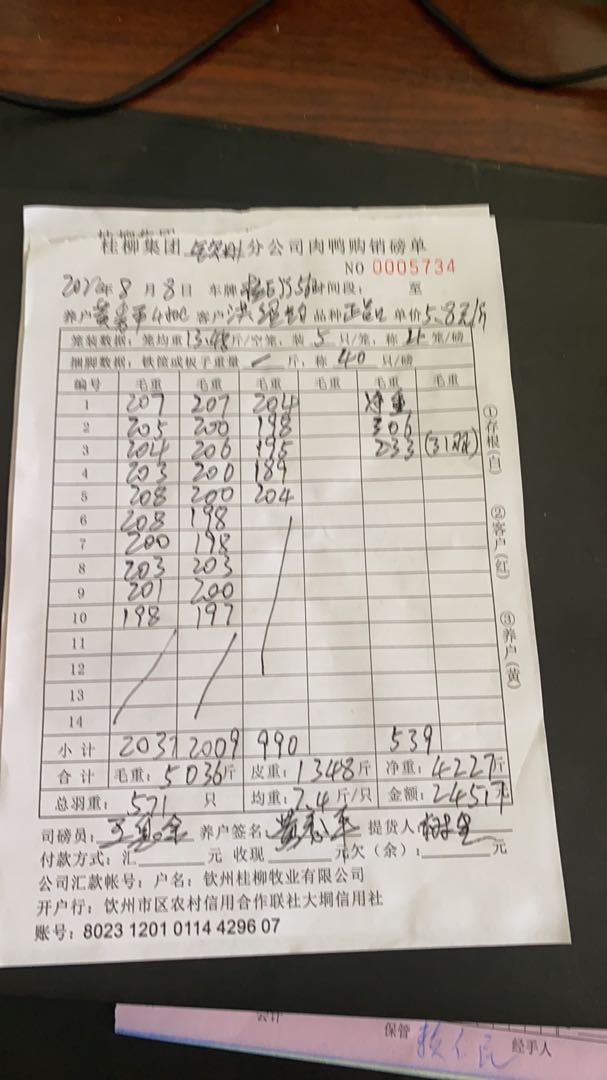 桂柳集团
桂柳集团 钦州 分公司肉鸭购销磅单
NO 0005734
8月8日 车牌 时间段： 至
养户 客户 品种 单价5.8元/斤
笼装数据：笼均重13.48斤/空笼，装5只/笼，称4笼/磅
捆脚数据：铁筐或板子重量／斤，称40只/磅
编号 毛重 毛重 毛重 毛重 毛重 毛重
1 207 207 204 净重
2 205 200 198 306
3 204 206 195 233 (31只)
4 203 200 189
5 208 200 204
6 208 198
7 200 198
8 203 203
9 201 200
10 198 197
11
12
13
14
小计 2037 2009 990 539
合计 毛重：5036斤 皮重：1348斤 净重：4227斤
总羽重：571只 均重：7.4斤/只 金额：24517元
司磅员： 养户签名： 提货人：
付款方式：汇 元 收现 元欠（余）： 元
公司汇款帐号：户名：钦州桂柳牧业有限公司
开户行：钦州市区农村信用合作联社大垌信用社
账号：8023 1201 0114 4296 07
①存根(白)
②客户(红)
③养户(黄)
会计 保管 经手人